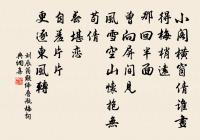 小閣橫窗倩誰畫
得梅梢遠
那回半面
曾向屏間見
風雪空山懷抱無
荀倩
春堪戀
自羞片片
更逐東風轉
劉辰翁點絳唇瓶梅詞